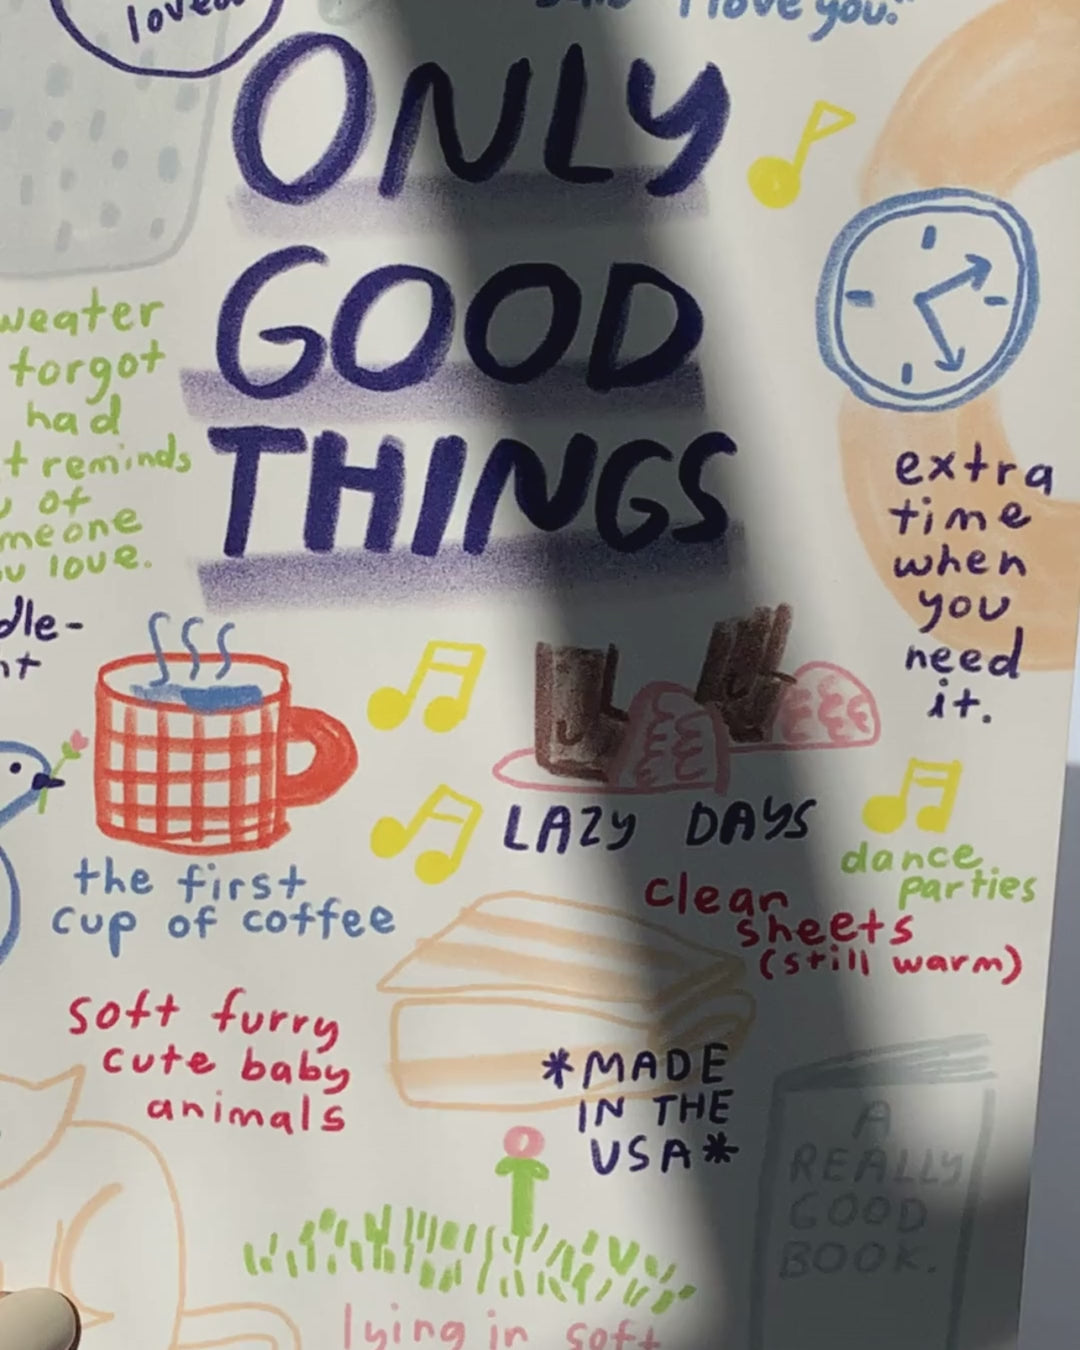 loved
"I love you."
ONLY
GOOD
THINGS
forgot
had
reminds
of
love.
extra
time
when
you
need
it.
the first
cup of coffee
LAZY DAYS
dance
parties
clean
sheets
(still warm)
soft furry
cute baby
animals
*MADE
IN THE
USA*
A
REALLY
GOOD
BOOK.
lying in soft